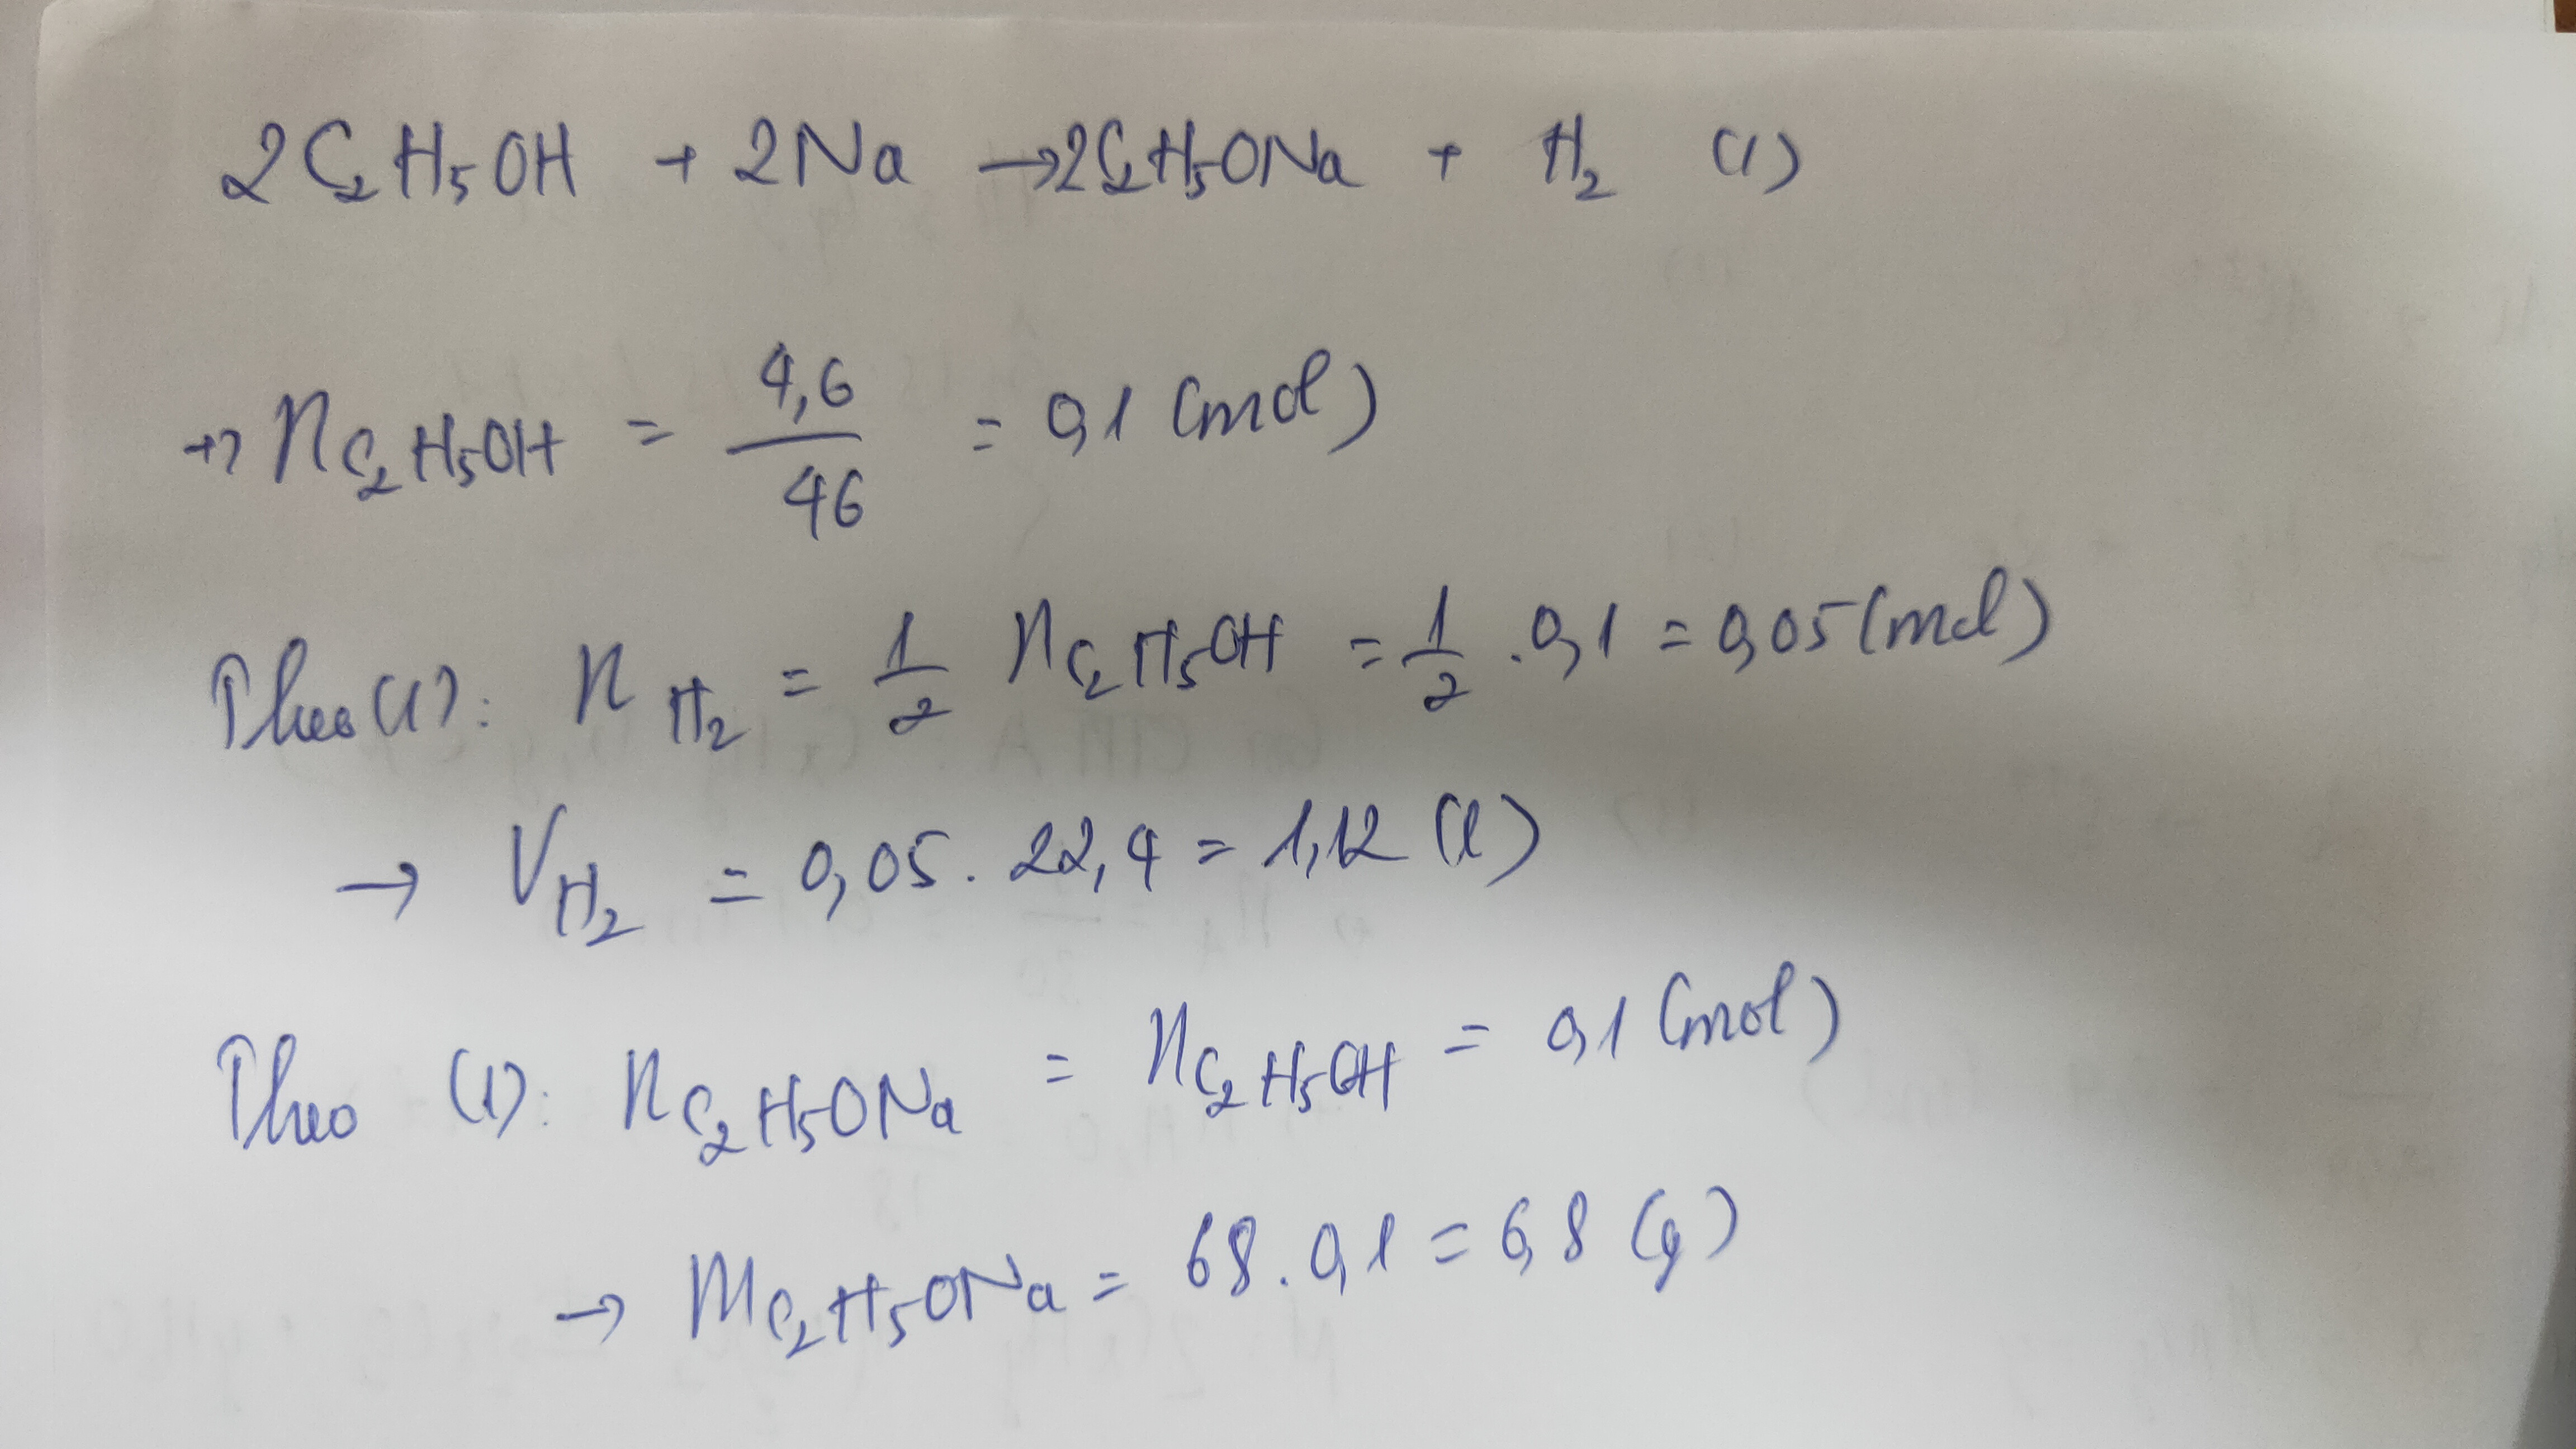 2C₂H₅OH + 2Na → 2C₂H₅ONa + H₂ (1)
+) n C₂H₅OH = 4,6 / 46 = 0,1 (mol)
Theo (1): n H₂ = 1/2 n C₂H₅OH = 1/2 . 0,1 = 0,05 (mol)
→ V H₂ = 0,05 . 22,4 = 1,12 (l)
Theo (1): n C₂H₅ONa = n C₂H₅OH = 0,1 (mol)
→ m C₂H₅ONa = 68 . 0,1 = 6,8 (g)